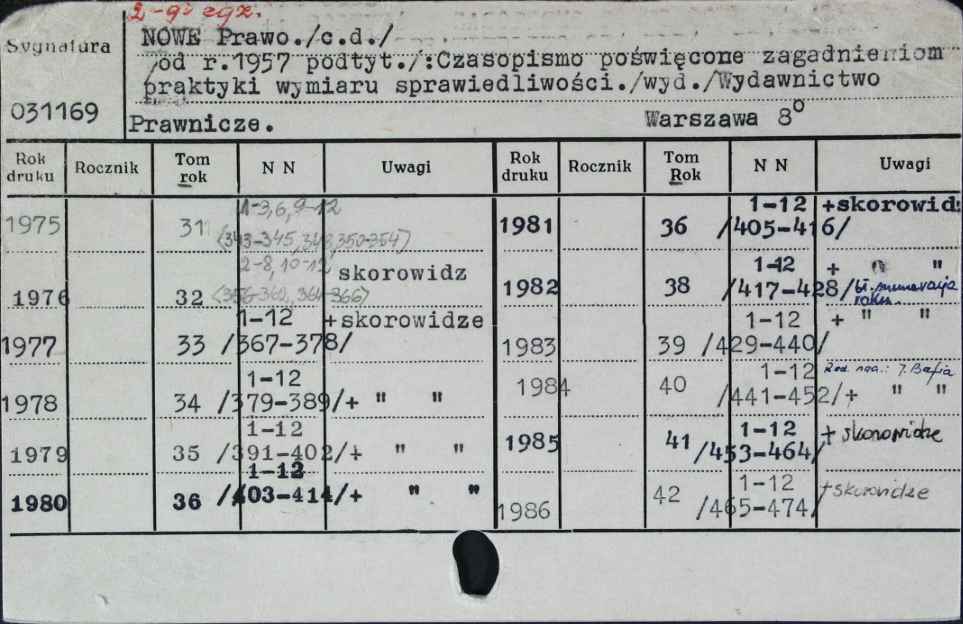 2-gi egz.
Sygnatura
031169
NOWE Prawo./c.d./
/od r.1957 podtyt./:Czasopismo poświęcone zagadnieniom
praktyki wymiaru sprawiedliwości./wyd./Wydawnictwo
Prawnicze. Warszawa 8°
Rok druku Rocznik Tom rok N N Uwagi
1975 31 1-3,6,9-12 (343-345,348,350-354)
1976 32 2-8,10-12 skorowidz
1977 33 1-12 /367-378/ +skorowidze
1978 34 1-12 /379-389/+ " "
1979 35 1-12 /391-402/+ " "
1980 36 1-12 /403-414/+ " "
Rok druku Rocznik Tom Rok N N Uwagi
1981 36 1-12 /405-416/ +skorowidz
1982 38 1-12 /417-428/ + " " roku
1983 39 1-12 /429-440/ + " "
1984 40 1-12 /441-452/+ " " Red. nacz.: J. Bafia
1985 41 1-12 /453-464/ + skorowidze
1986 42 1-12 /465-474/ +skorowidze